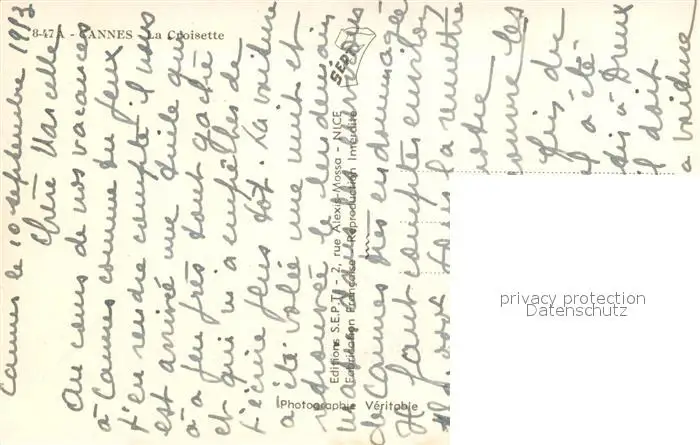 8-47A - CANNES - La Croisette
Editions S.E.P.T. - 2, rue Alexis-Mossa - NICE
Fabrication Française - Reproduction Interdite
Photographie Véritable
SEPT
Cannes le 10 septembre 1973
Chère Marcelle
Au cours de nos vacances
à Cannes comme tu peux
t'en rendre compte il nous
est arrivé une tuile qui
a à peu près tout gaché
et qui m'a empêchée de
t'écrire plus tôt. La voiture
a été volée une nuit et
retrouvée le lendemain
de Cannes très endommagée
Il faut compter environ
pour la remettre
notre
ouvre les
fis. du
il a été
à Dreux
il doit
a voiture
privacy protection
Datenschutz